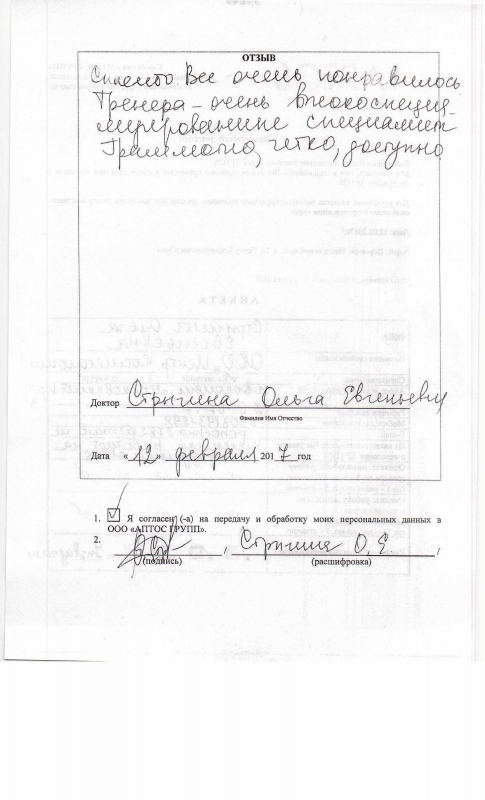 ОТЗЫВ
Спасибо Все очень понравилось
Тренера - очень высокоспециа-
лизированные специалисты
Грамотно, четко, доступно
Доктор Стрыгина Ольга Евгеньевна
Фамилия Имя Отчество
Дата «12» февраля 2017 год
1. ☑ Я согласен (-а) на передачу и обработку моих персональных данных в
ООО «АПТОС ГРУПП».
2. , Стрыгина О.Е ,
(подпись) (расшифровка)